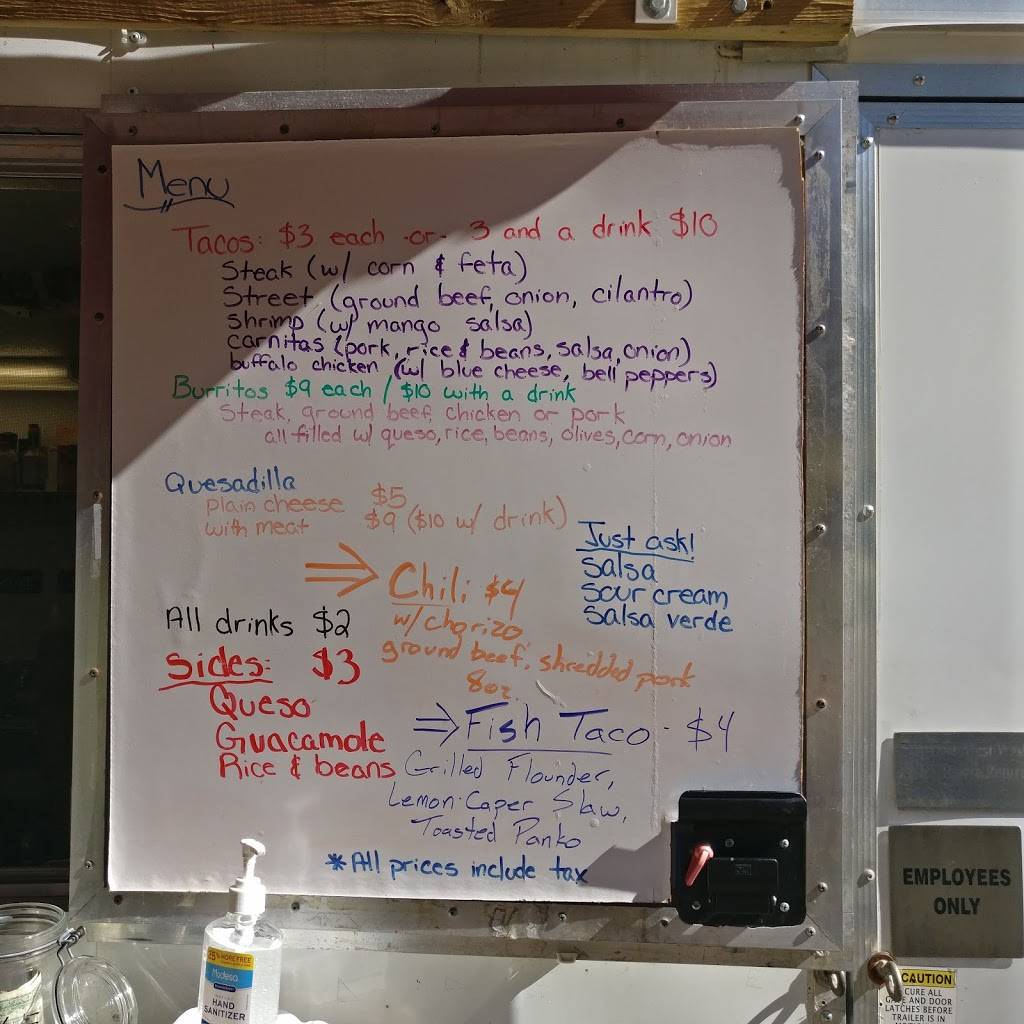 Menu
Tacos: $3 each -or- 3 and a drink $10
Steak (w/ corn & feta)
Street (ground beef, onion, cilantro)
Shrimp (w/ mango salsa)
carnitas (pork, rice & beans, salsa, onion)
buffalo chicken (w/ blue cheese, bell peppers)
Burritos $9 each / $10 with a drink
Steak, ground beef, chicken or pork
all filled w/ queso, rice, beans, olives, corn, onion
Quesadilla
plain cheese $5
with meat $9 ($10 w/ drink)
Just ask!
salsa
sour cream
salsa verde
⇒ Chili $4
w/ chorizo
ground beef, shredded pork
8oz
All drinks $2
Sides: $3
Queso
Guacamole
Rice & beans
⇒ Fish Taco - $4
Grilled Flounder,
Lemon-Caper Slaw,
Toasted Panko
*All prices include tax
EMPLOYEES
ONLY
25% MORE FREE
Modesa
HAND
SANITIZER
CAUTION
SECURE ALL
GATE AND DOOR
LATCHES BEFORE
TRAILER IS IN